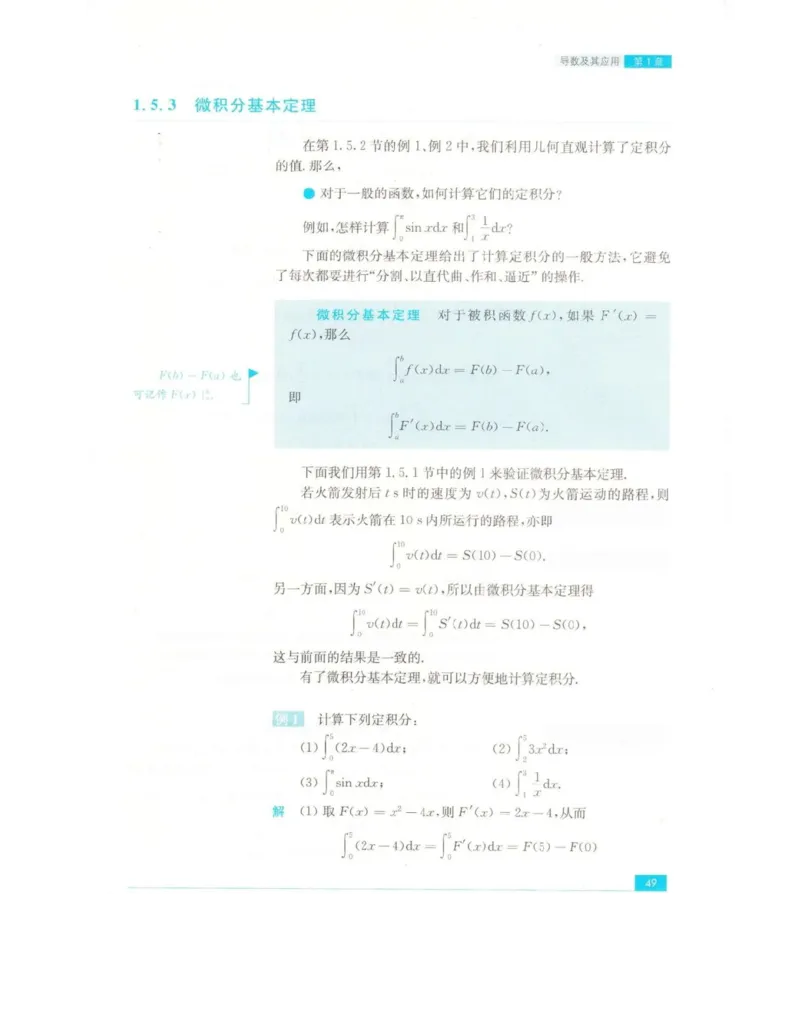 导数及其应用 第1章
1.5.3 微积分基本定理
在第1.5.2节的例1、例2中,我们利用几何直观计算了定积分
的值.那么,
● 对于一般的函数,如何计算它们的定积分?
例如,怎样计算∫₀^π sin xdx 和∫₁² 1/x dx?
下面的微积分基本定理给出了计算定积分的一般方法,它避免
了每次都要进行“分割、以直代曲、作和、逼近”的操作.
微积分基本定理 对于被积函数f(x),如果F′(x) =
f(x),那么
∫ₐᵇ f(x)dx = F(b) − F(a),
F(b) − F(a) 也
可记作 F(x)
即
∫ₐᵇ F′(x)dx = F(b) − F(a).
下面我们用第1.5.1节中的例1来验证微积分基本定理.
若火箭发射后 t s时的速度为 v(t),S(t)为火箭运动的路程,则
∫₀¹⁰ v(t)dt 表示火箭在10 s内所运行的路程,亦即
∫₀¹⁰ v(t)dt = S(10) − S(0).
另一方面,因为 S′(t) = v(t),所以由微积分基本定理得
∫₀¹⁰ v(t)dt = ∫₀¹⁰ S′(t)dt = S(10) − S(0),
这与前面的结果是一致的.
有了微积分基本定理,就可以方便地计算定积分.
例1 计算下列定积分:
(1) ∫₀⁵ (2x − 4)dx; (2) ∫₂⁵ 3x²dx;
(3) ∫₀^π sin xdx; (4) ∫₁² 1/x dx.
解 (1) 取 F(x) = x² − 4x,则 F′(x) = 2x − 4,从而
∫₀⁵ (2x − 4)dx = ∫₀⁵ F′(x)dx = F(5) − F(0)
49